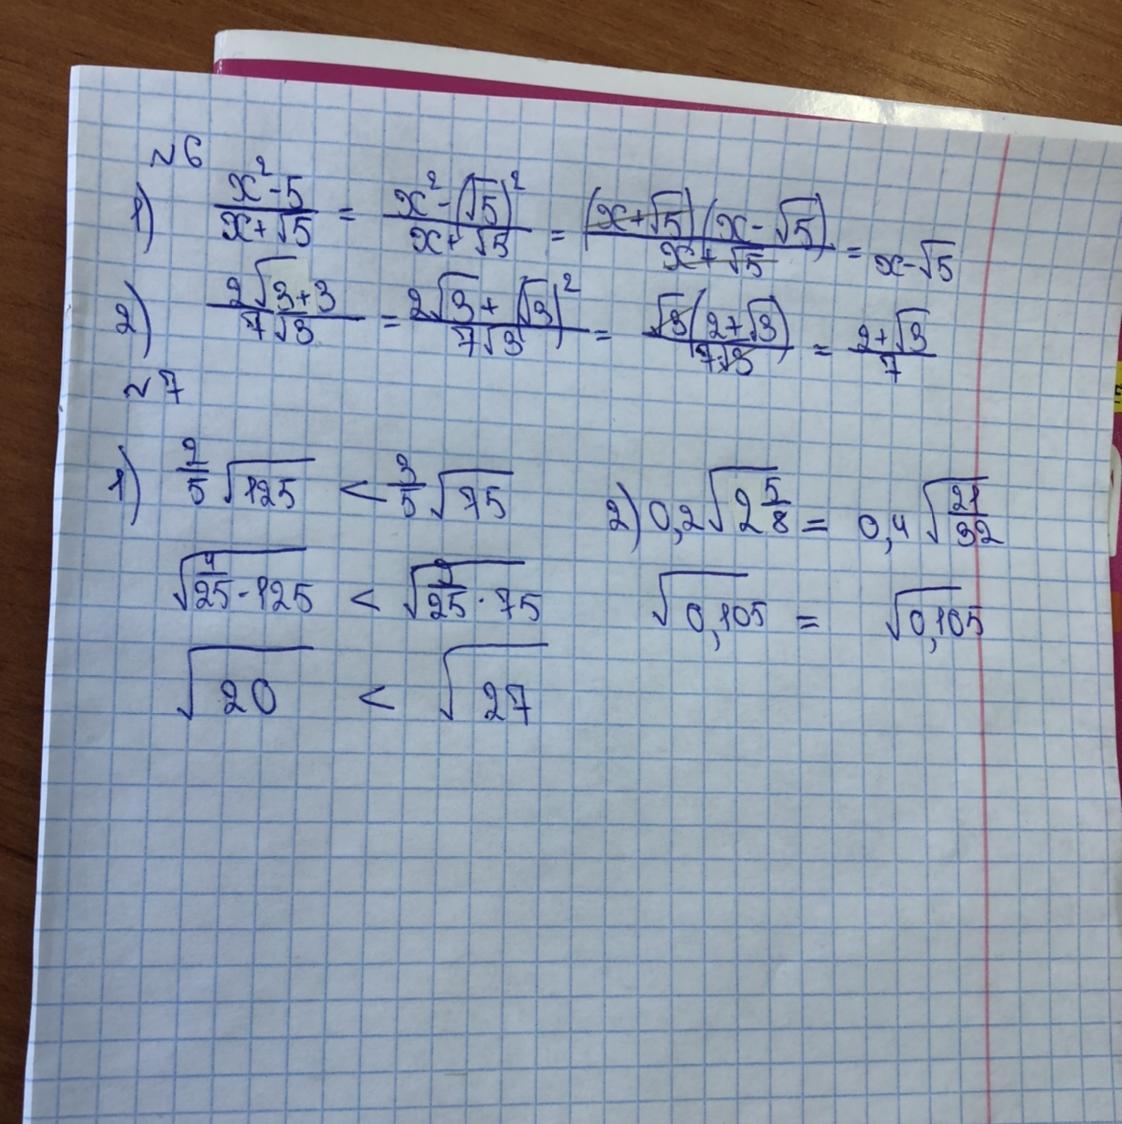 №6
1) (x²-5)/(x+√5) = (x²-(√5)²)/(x+√5) = ((x+√5)(x-√5))/(x+√5) = x-√5
2) (2√3+3)/(7√3) = (2√3+(√3)²)/(7√3) = (√3(2+√3))/(7√3) = (2+√3)/7
№7
1) 2/5 √125 < 3/5 √75
√(4/25 · 125) < √(9/25 · 75)
√20 < √27
2) 0,2√(2 5/8) = 0,4√(21/32)
√0,105 = √0,105